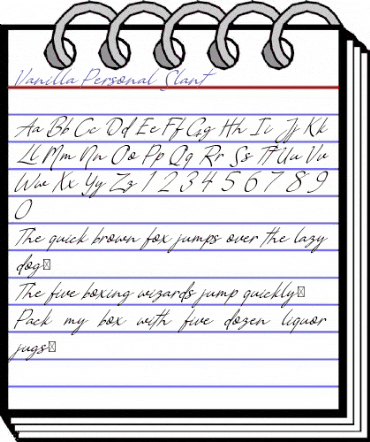 Vanilla Personal Slant
Aa Bb Cc Dd Ee Ff Gg Hh Ii Jj Kk
Ll Mm Nn Oo Pp Qq Rr Ss Tt Uu Vv
Ww Xx Yy Zz 1 2 3 4 5 6 7 8 9
0
The quick brown fox jumps over the lazy
dog▯
The five boxing wizards jump quickly▯
Pack my box with five dozen liquor
jugs▯